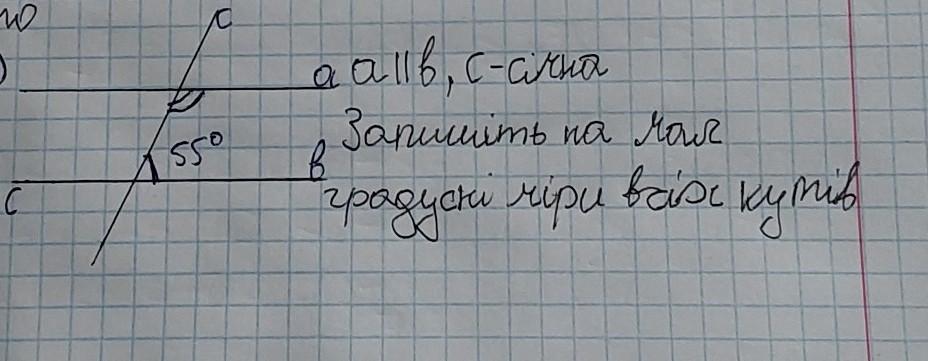 ю
c
) a a||b, c-січна
Запишіть на мал
55° b
c градусні міри всіх кутів